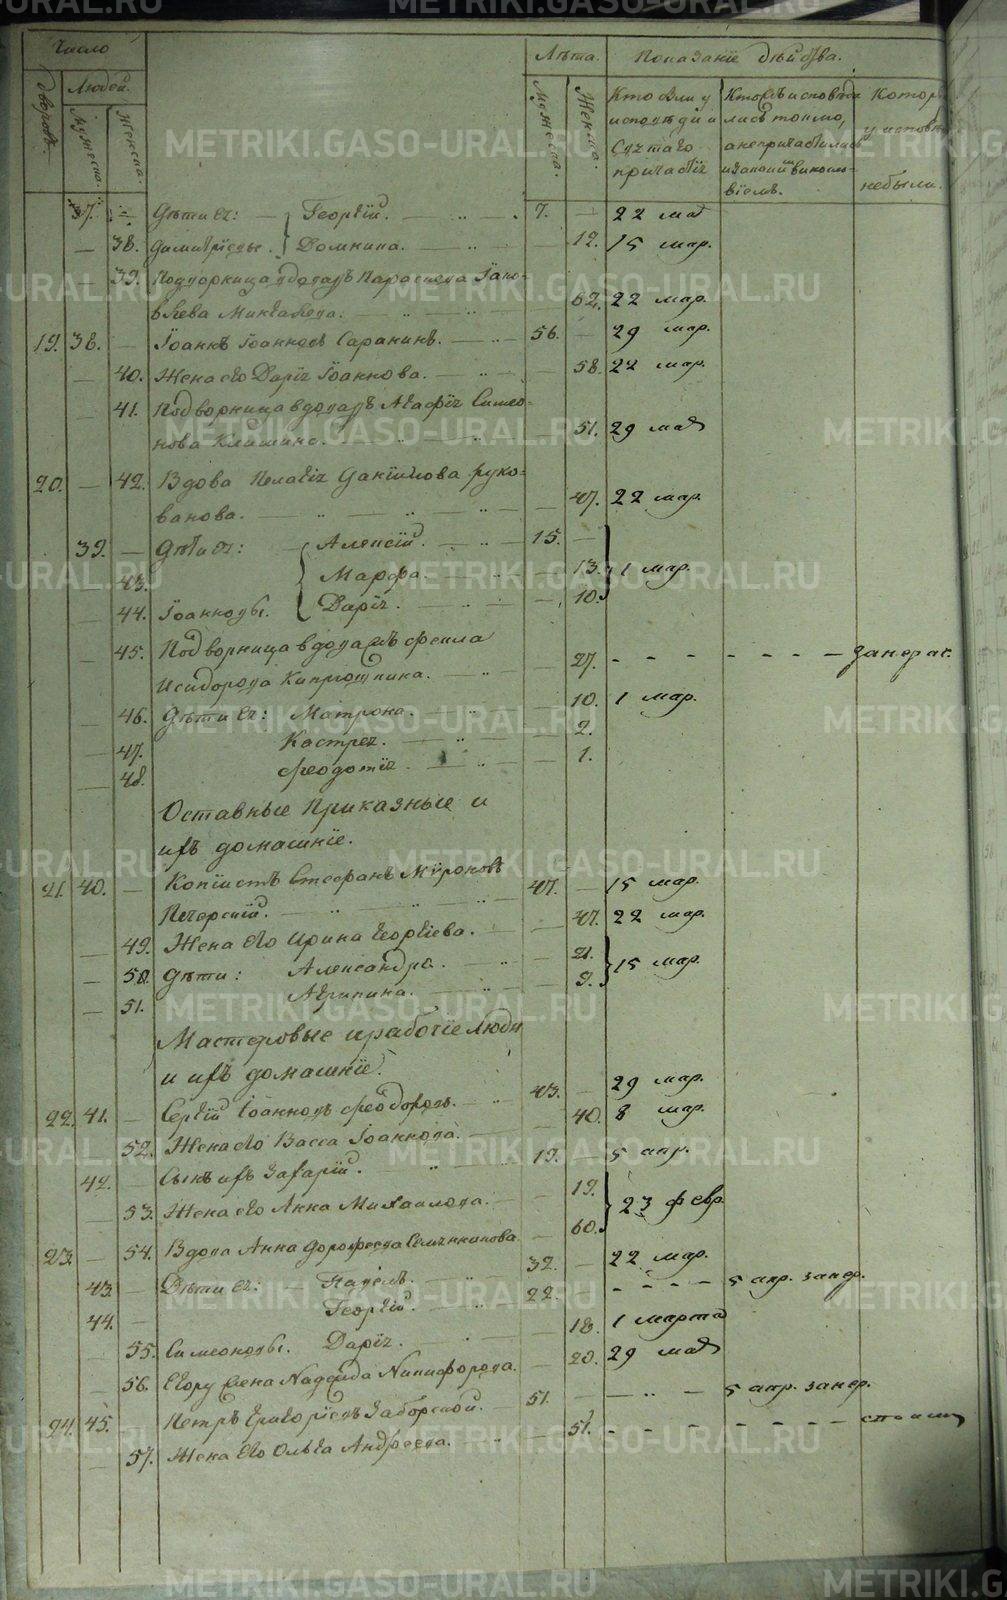 Число
Лѣта. Показанїе дѣйства.
дворовъ.
Людей.
Мужеска. Женска.
Мужеска. Женска.
Кто были у исповѣди и Святаго причастїя
лись токмо, а непричастились
у исповѣди небыли.
37. — Дѣти ея: — Георгїй. 7. — 22 мая
— 38. Димитрїевы. Домнина. — 12. 15 мар.
— 39. Подворница вдова Параскева Яков-
лева — 62. 22 мар.
19. 38. — Їоаннъ Їоанновъ Саранинъ. 56. — 29 мар.
— 40. Жена его Дарїя Їоаннова. — 58. 22 мар.
— 41. Подворница вдова Агафїя Симео-
нова — 51. 29 мая
20. — 42. Вдова Пелагїя Данїилова Руко-
ванова. — 47. 22 мар.
39. — Дѣти ея: Алексїй. 15. —
43. Марфа. — 13. 1 мар.
44. Їоанновы. Дарїя. — 10.
— 45. Подворница вдова
Исидорова — 27. — занерас.
46. Дѣти ея: Матрона. — 10. 1 мар.
47. 2.
48. Феодотїя — 1.
Оставные Приказные и
ихъ домашнїе.
21. 40. — Копїистъ Стефанъ Мѵроновъ
Печерскїй. 47. — 15 мар.
— 49. Жена его Ирина Георгїева. — 47. 22 мар.
— 50. Дѣти: Александра. — 21. 15 мар.
— 51. Агрипина. — 9.
Мастеровые и рабочїе люди
и ихъ домашнїе.
22. 41. — Сергїй Їоанновъ Феодоровъ. 43. — 29 мар.
52. Жена его Васса Їоаннова. — 40. 8 мар.
42. — Сынъ ихъ Захарїй. 19. — 5 апр.
53. Жена его Анна Михаилова. — 19. 23 февр.
23. — 54. Вдова Анна Дорофеева — 60.
43. — Дѣти ея: — Павелъ. 32. — 22 мар.
44. — Георгїй. 22. — 5 апр. занер.
55. Симеоновы. Дарїя. — 18. 1 марта
56. Егору жена Надежда Никифорова. — 20. 29 мая
24. 45. Петръ Григорїевъ Заборской. 51. — 5 апр. занер.
— 57. Жена его Ольга Андреева. — 51.
METRIKI.GASO-URAL.RU